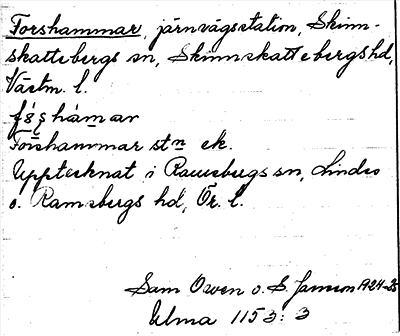 Forshammar, järnvägsstation, Skinn-
skattebergs sn, Skinnskattebergs hd,
Västm. l.
Forshammar stn ek.
Upptecknat i Ramsbergs sn, Lindes
o. Ramsbergs hd, Ör. l.
Sam Owen o. S. Janson 1924-25
Ulma 1153: 3